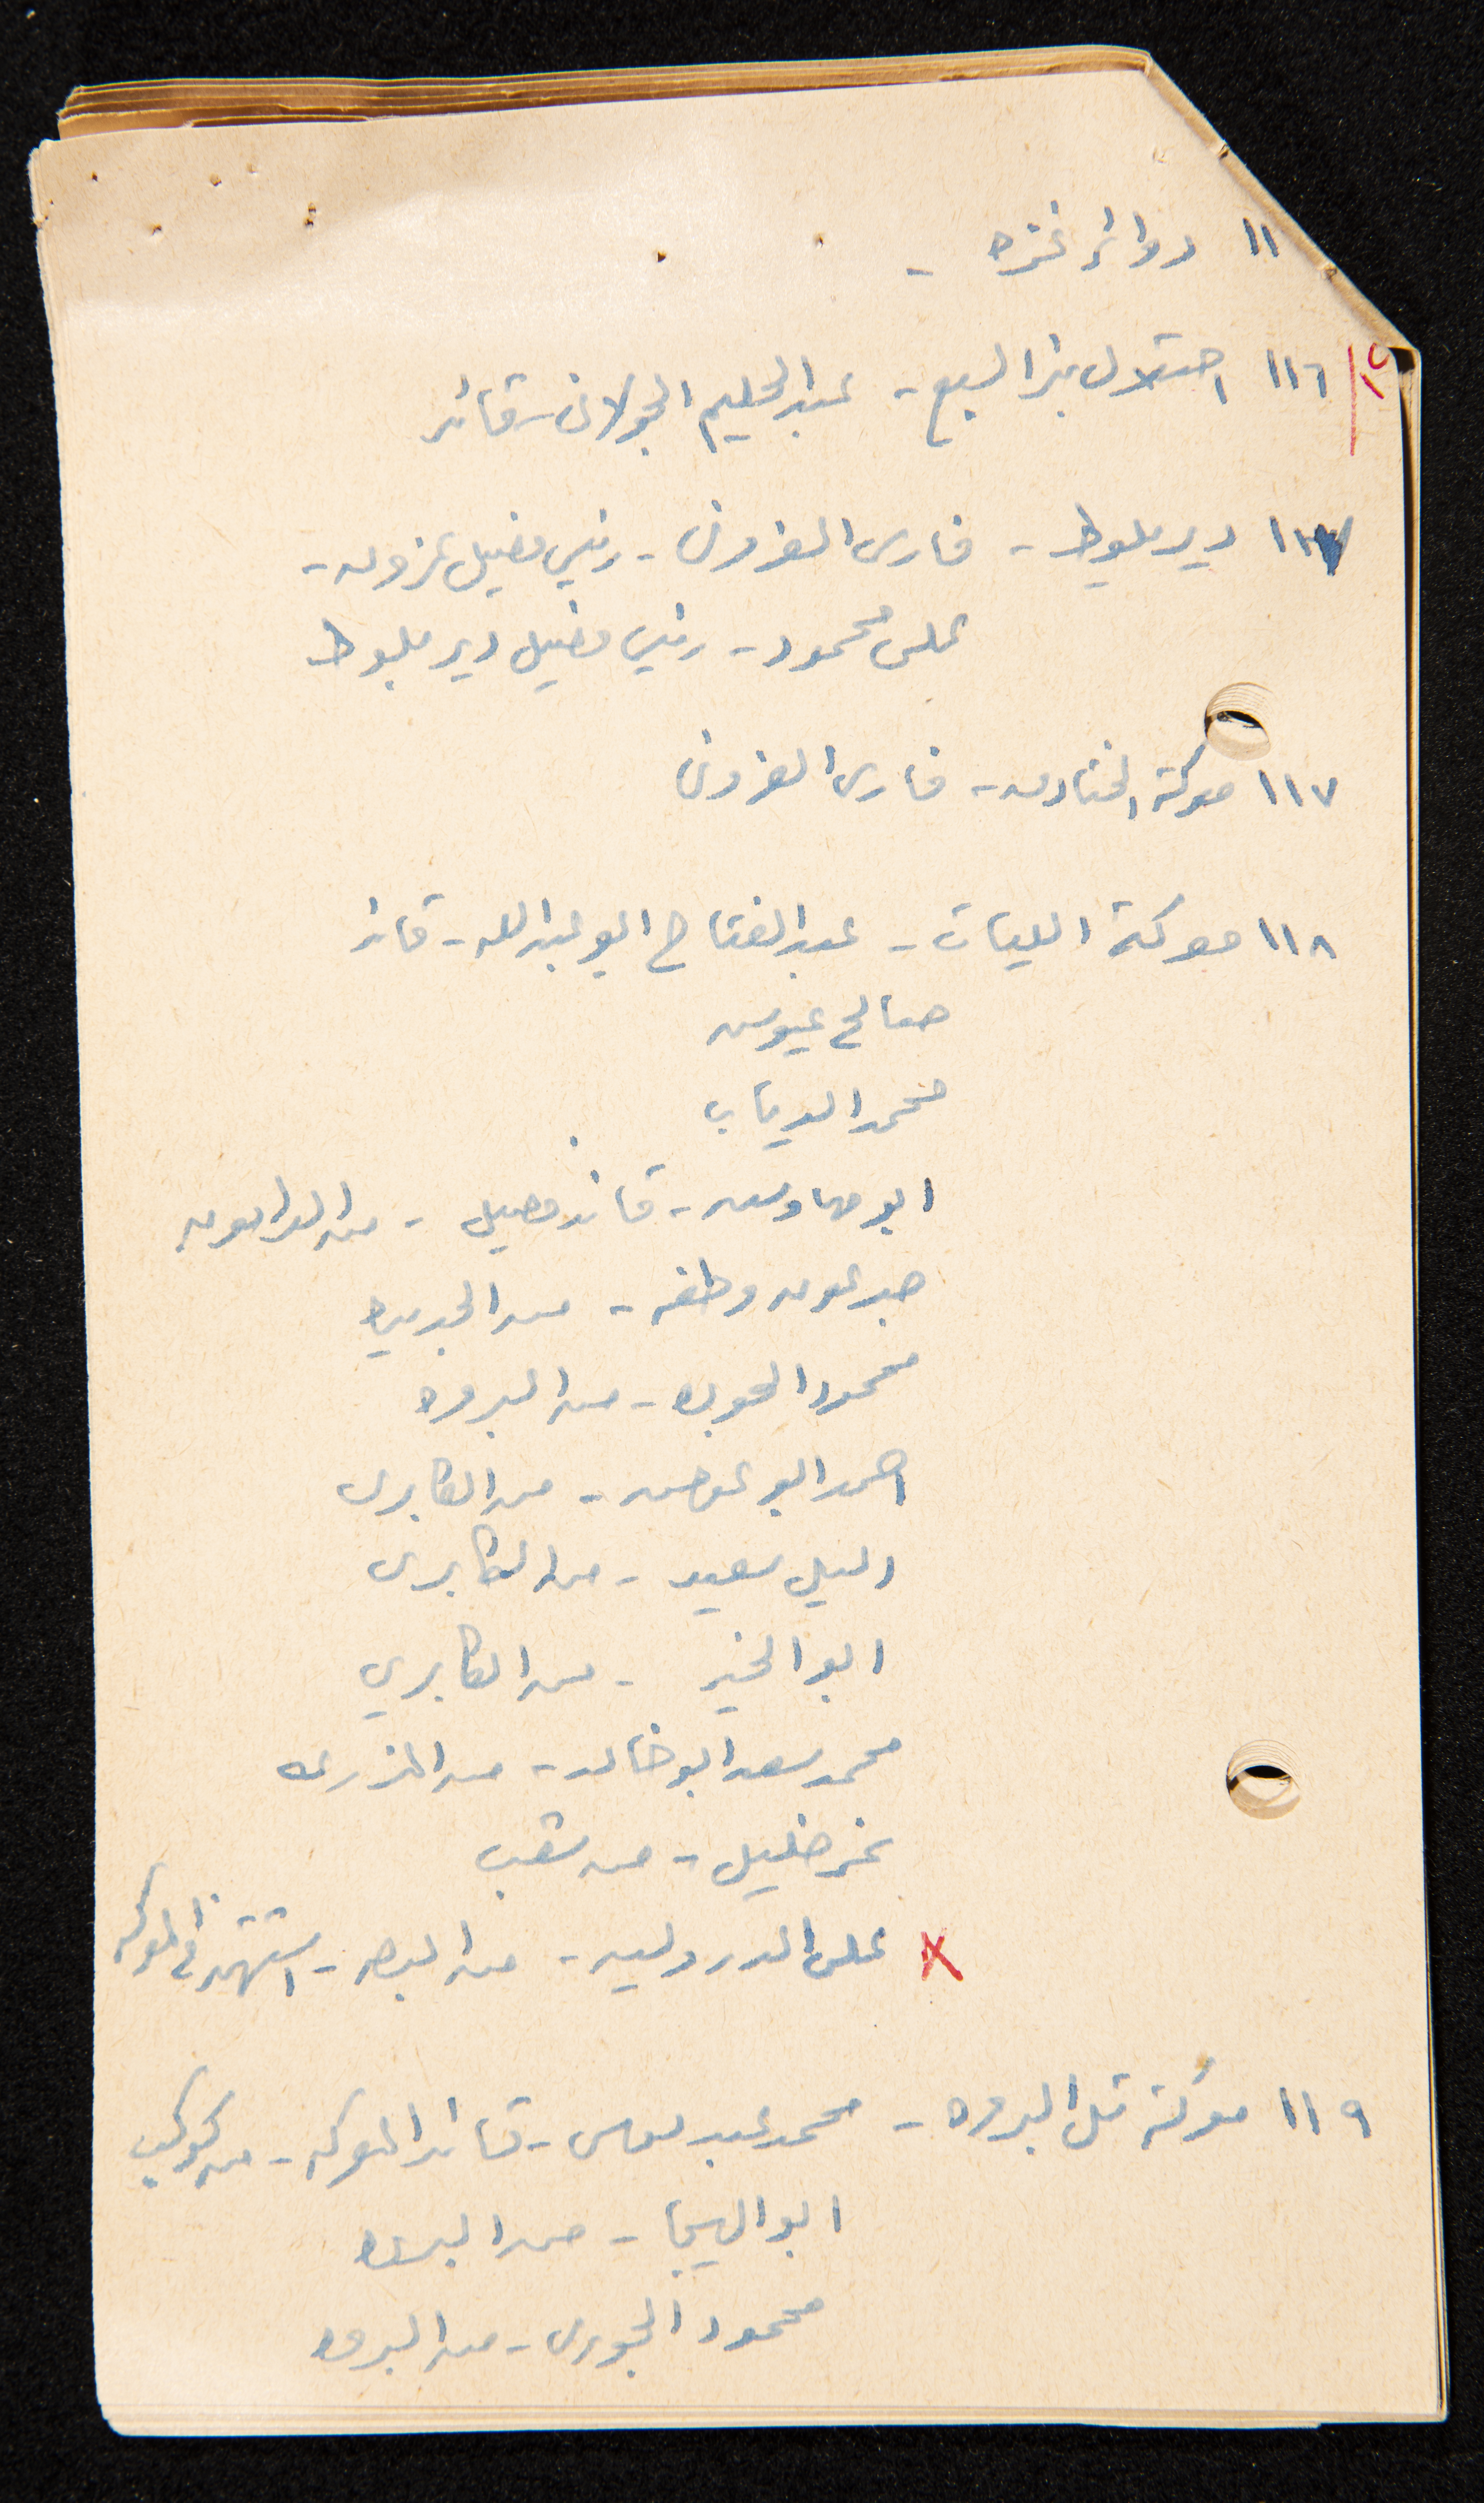 ١١ دوائر غزه -
١٥
١١٦ احتلال بئر السبع - عبد الحليم الجولاني - قائد
١١٧ دير بلوط - فارس العزوني - رئيس فصيل عزون -
علي محمود - رئيس فصيل دير بلوط
١١٧ معركة الخنادق - فارس العزوني
١١٨ معركة الليات - عبد الفتاح ابو عبدالله - قائد
صالح
محمد الدياب
ابو - قائد فصيل - من
وطفه - من الجديده
محمود - من البروه
احمد ابو عوض - من الكابري
سعيد - من الكابري
ابو الخير - من الكابري
محمد سعد ابو خالد - من المزرعه
نمر خليل - من شعب
X علي - من البصه - استشهد في المعركه
١١٩ معركة تل البروه - محمد عبد موسى - قائد المعركه - من كوكب
ابو الهيجا - من البروه
محمود الجبوري - من البروه